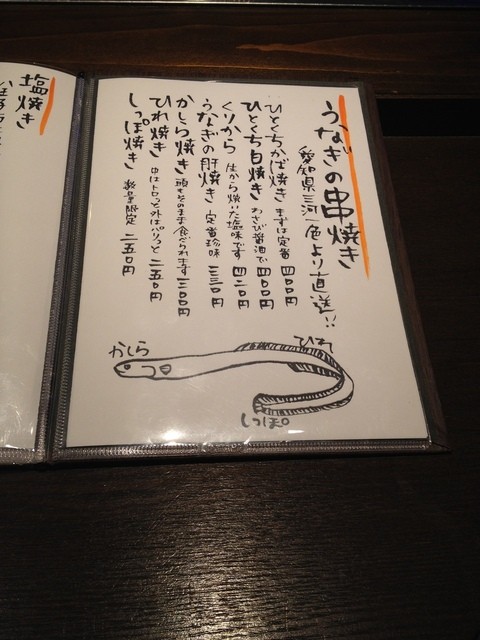 うなぎの串焼き
愛知県三河一色より直送!!
ひとくちかば焼き まずは定番 四〇〇円
ひとくち白焼き わさび醤油で 四〇〇円
くりから 生から焼いた塩味です 四二〇円
うなぎの肝焼き 定番珍味 三三〇円
かしら焼き 頭もそのまま食べられます 三〇〇円
ひれ焼き 中はトロっと外はパリっと 二五〇円
しっぽ焼き 数量限定 二五〇円
かしら
ひれ
しっぽ
塩焼き